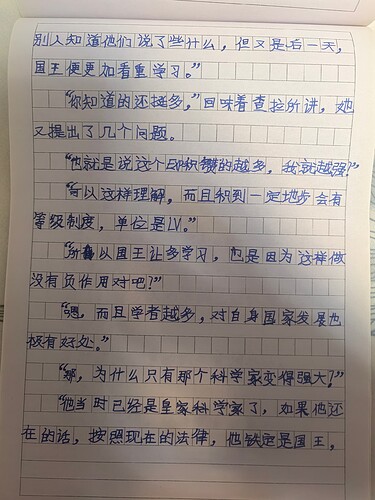 别人知道他们说了些什么，但又是后一天，
国王便更加看重学习。”
“你知道的还挺多，”回味着查拉所讲，她
又提出了几个问题。
“也就是说这个积攒的越多，我就越强？”
“可以这样理解，而且积到一定地步会有
等级制度，单位是LV。”
“所以国王让多学习，也是因为这样做
没有负作用对吧？”
“嗯，而且学者越多，对自身国家发展也
极有好处。”
“那，为什么只有那个科学家变得强大？”
“他当时已经是皇家科学家了，如果他还
在的话，按照现在的法律，他铁定是国王，